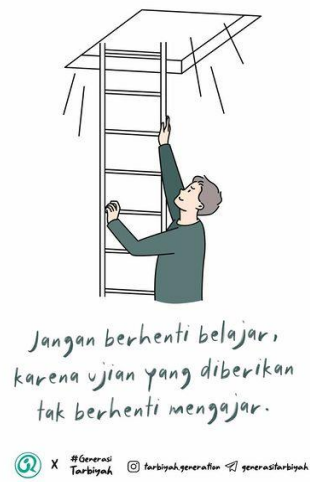 Jangan berhenti belajar,
karena ujian yang diberikan
tak berhenti mengajar.
x #Generasi
Tarbiyah
tarbiyah.generation generasitarbiyah